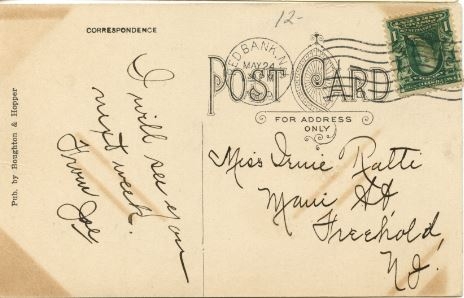 12-
CORRESPONDENCE
RED BANK, N.J.
MAY 24
POST CARD
FOR ADDRESS
ONLY
I will see you
next week.
From Joe
Miss
Main St
Freehold
N.J.
Pub. by Boughton & Hopper